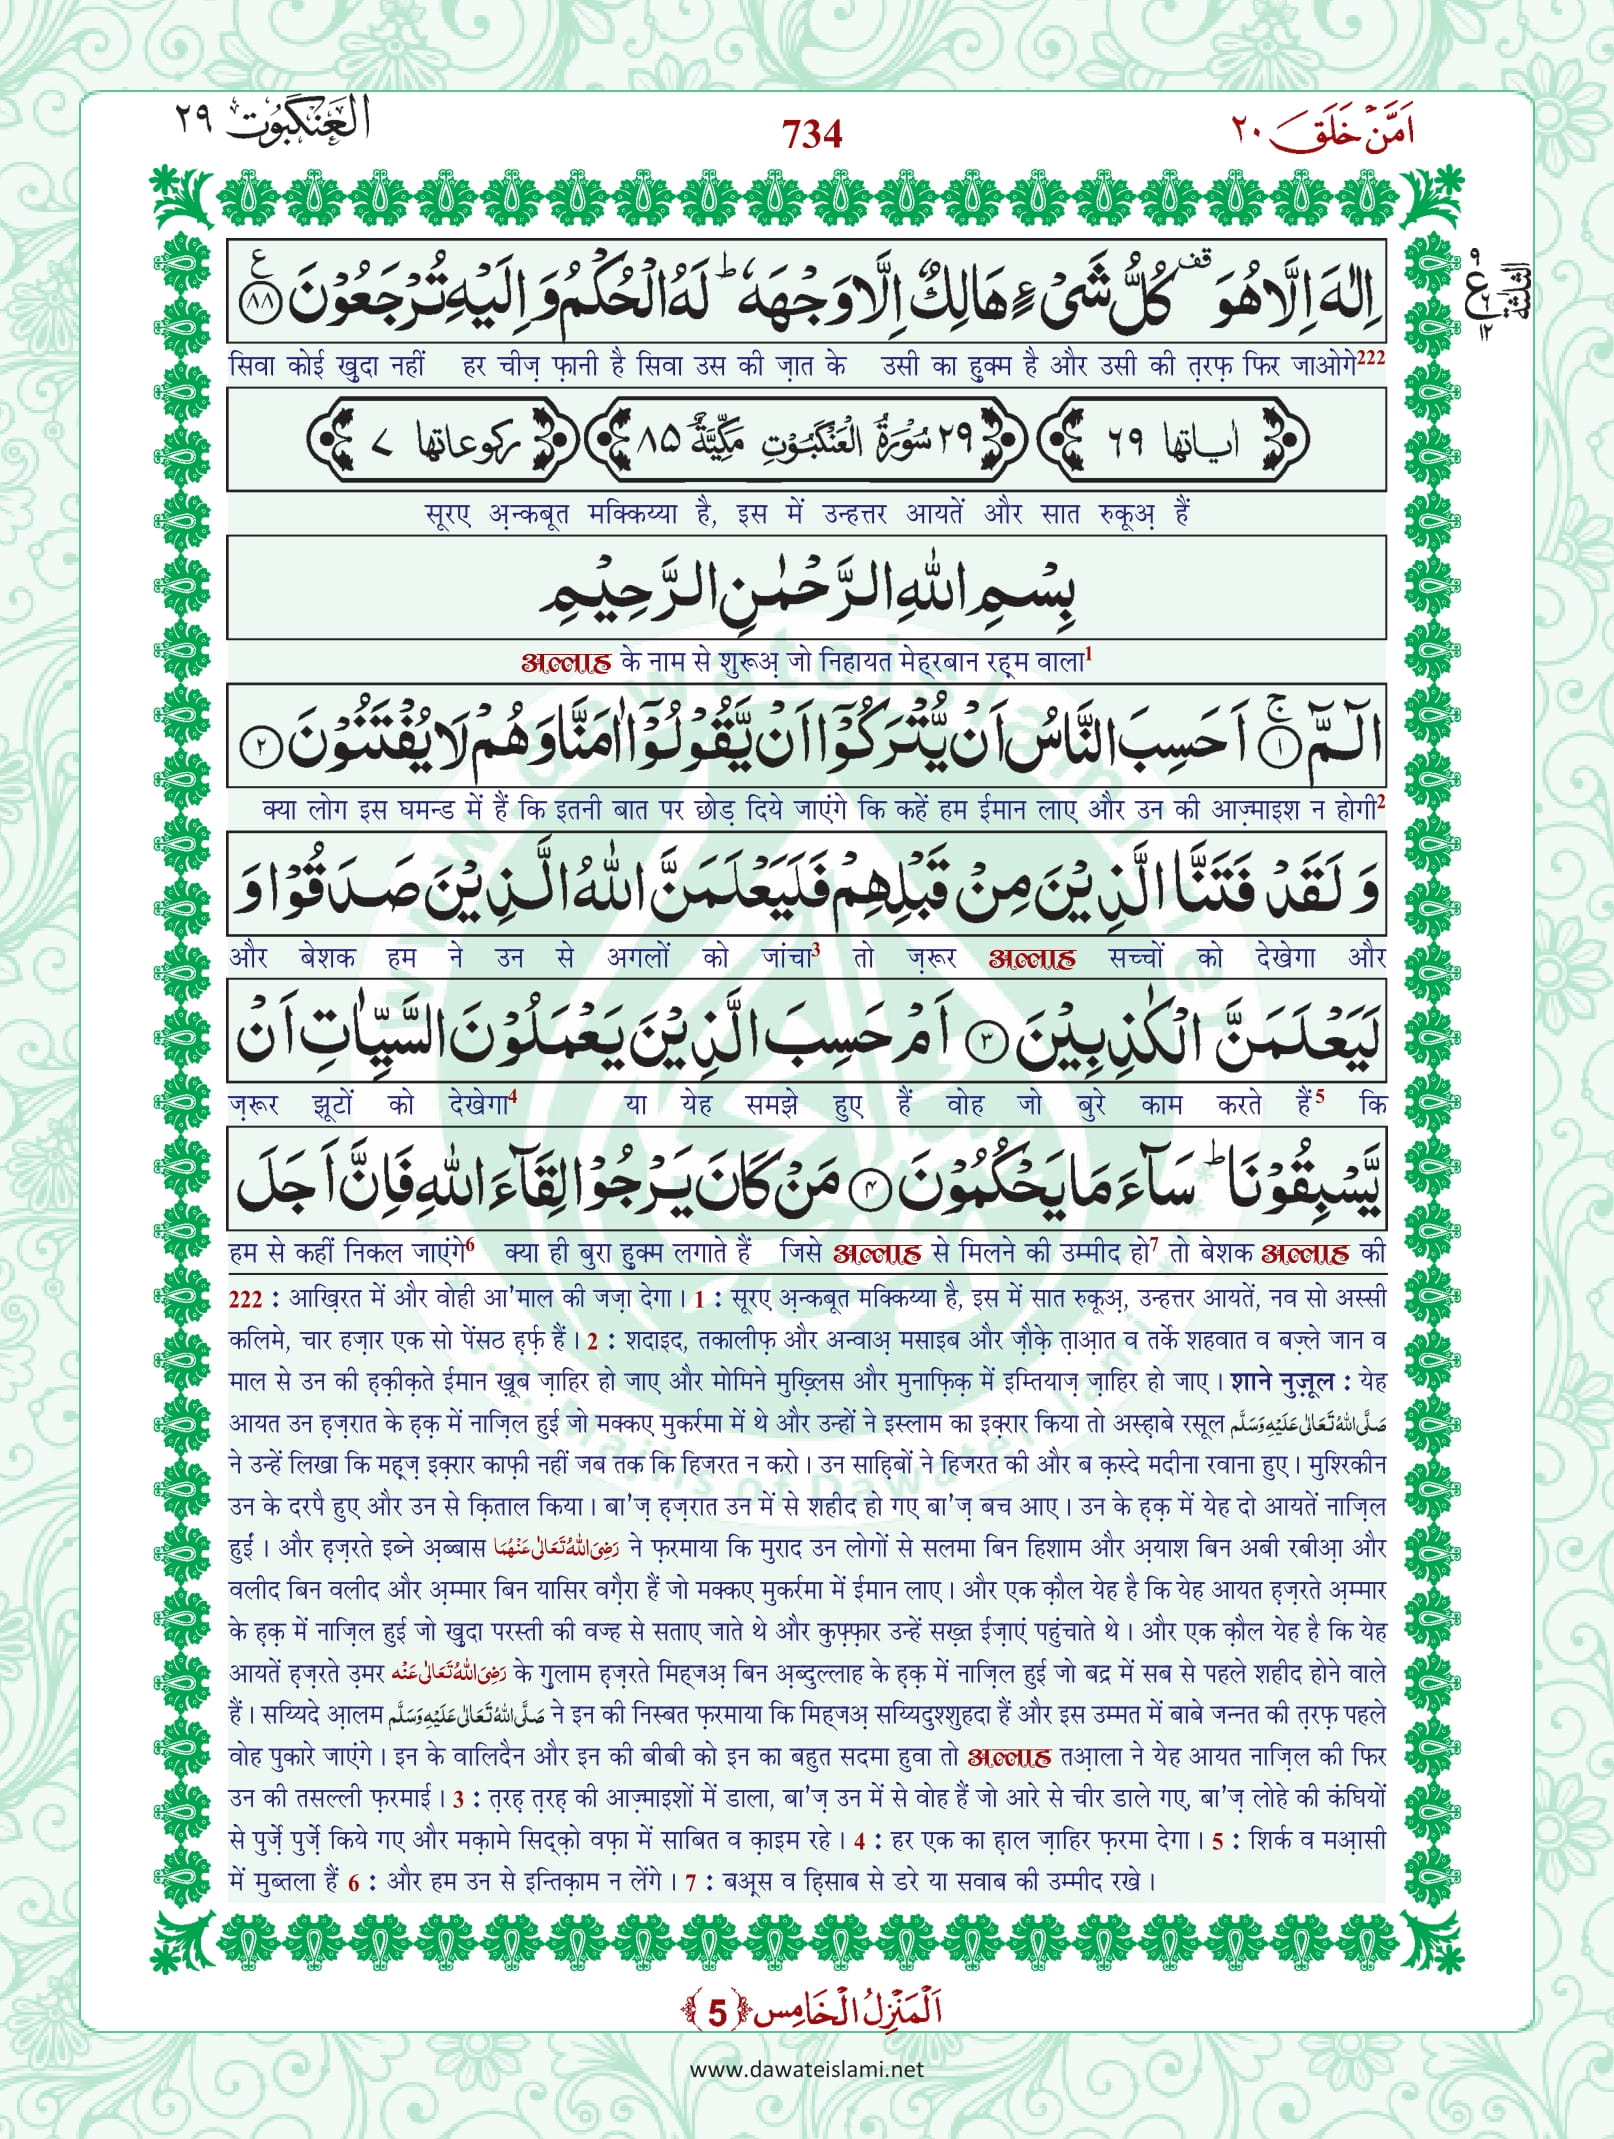 اَمَّنْ خَلَقَ ٢٠
734
الْعَنْكَبُوْت ٢٩
اِلٰهَ اِلَّا هُوَ ۫ قف كُلُّ شَیْءٍ هَالِكٌ اِلَّا وَجْهَهٗ ؕ لَهُ الْحُكْمُ وَ اِلَیْهِ تُرْجَعُوْنَ ﴿٨٨﴾ ع
सिवा कोई ख़ुदा नहीं हर चीज़ फ़ानी है सिवा उस की ज़ात के उसी का हुक्म है और उसी की त़रफ़ फिर जाओगे222
اٰیاتها ٦٩ ٢٩ سُوْرَةُ الْعَنْكَبُوْتِ مَكِّیَّةٌ ٨٥ ركوعاتها ٧
सूरए अ़न्कबूत मक्किय्या है, इस में उन्हत्तर आयतें और सात रुकूअ़ हैं
بِسْمِ اللّٰهِ الرَّحْمٰنِ الرَّحِیْمِ
अल्लाह के नाम से शुरूअ़ जो निहायत मेह्रबान रह़्म वाला1
الٓمّٓ ﴿١﴾ ج اَحَسِبَ النَّاسُ اَنْ یُّتْرَكُوْۤا اَنْ یَّقُوْلُوْۤا اٰمَنَّا وَ هُمْ لَا یُفْتَنُوْنَ ﴿٢﴾
क्या लोग इस घमन्ड में हैं कि इतनी बात पर छोड़ दिये जाएंगे कि कहें हम ईमान लाए और उन की आज़्माइश न होगी2
وَ لَقَدْ فَتَنَّا الَّذِیْنَ مِنْ قَبْلِهِمْ فَلَیَعْلَمَنَّ اللّٰهُ الَّذِیْنَ صَدَقُوْا وَ
और बेशक हम ने उन से अगलों को जांचा3 तो ज़रूर अल्लाह सच्चों को देखेगा और
لَیَعْلَمَنَّ الْكٰذِبِیْنَ ﴿٣﴾ اَمْ حَسِبَ الَّذِیْنَ یَعْمَلُوْنَ السَّیِّاٰتِ اَنْ
ज़रूर झूटों को देखेगा4 या येह समझे हुए हैं वोह जो बुरे काम करते हैं5 कि
یَّسْبِقُوْنَا ؕ سَآءَ مَا یَحْكُمُوْنَ ﴿٤﴾ مَنْ كَانَ یَرْجُوْا لِقَآءَ اللّٰهِ فَاِنَّ اَجَلَ
हम से कहीं निकल जाएंगे6 क्या ही बुरा हुक्म लगाते हैं जिसे अल्लाह से मिलने की उम्मीद हो7 तो बेशक अल्लाह की
222 : आख़िरत में और वोही आ'माल की जज़ा देगा। 1 : सूरए अ़न्कबूत मक्किय्या है, इस में सात रुकूअ़, उन्हत्तर आयतें, नव सो अस्सी
कलिमे, चार हज़ार एक सो पेंसठ ह़र्फ़ हैं। 2 : शदाइद, तकालीफ़ और अन्वाअ़ मसाइब और ज़ौक़े त़ाआ़त व तर्के शहवात व बज़्ले जान व
माल से उन की ह़क़ीक़ते ईमान ख़ूब ज़ाहिर हो जाए और मोमिने मुख़्लिस और मुनाफ़िक़ में इम्तियाज़ ज़ाहिर हो जाए। शाने नुज़ूल : येह
आयत उन ह़ज़रात के ह़क़ में नाज़िल हुई जो मक्कए मुकर्रमा में थे और उन्हों ने इस्लाम का इक़्रार किया तो अस्ह़ाबे रसूल صَلَّی اللّٰهُ تَعَالٰی عَلَیْهِ وَسَلَّم
ने उन्हें लिखा कि मह़्ज़ इक़्रार काफ़ी नहीं जब तक कि हिजरत न करो। उन साहि़बों ने हिजरत की और ब क़स्दे मदीना रवाना हुए। मुश्रिकीन
उन के दरपै हुए और उन से क़िताल किया। बा'ज़ ह़ज़रात उन में से शहीद हो गए बा'ज़ बच आए। उन के ह़क़ में येह दो आयतें नाज़िल
हुईं। और ह़ज़रते इब्ने अ़ब्बास رَضِیَ اللّٰهُ تَعَالٰی عَنْهُمَا ने फ़रमाया कि मुराद उन लोगों से सलमा बिन हिशाम और अ़याश बिन अबी रबीआ़ और
वलीद बिन वलीद और अ़म्मार बिन यासिर वग़ैरा हैं जो मक्कए मुकर्रमा में ईमान लाए। और एक क़ौल येह है कि येह आयत ह़ज़रते अ़म्मार
के ह़क़ में नाज़िल हुई जो ख़ुदा परस्ती की वज्ह से सताए जाते थे और कुफ़्फ़ार उन्हें सख़्त ईज़ाएं पहुंचाते थे। और एक क़ौल येह है कि येह
आयतें ह़ज़रते उ़मर رَضِیَ اللّٰهُ تَعَالٰی عَنْه के ग़ुलाम ह़ज़रते मिह्जअ़ बिन अ़ब्दुल्लाह के ह़क़ में नाज़िल हुई जो बद्र में सब से पहले शहीद होने वाले
हैं। सय्यिदे आ़लम صَلَّی اللّٰهُ تَعَالٰی عَلَیْهِ وَسَلَّم ने इन की निस्बत फ़रमाया कि मिह्जअ़ सय्यिदुश्शुहदा हैं और इस उम्मत में बाबे जन्नत की त़रफ़ पहले
वोह पुकारे जाएंगे। इन के वालिदैन और इन की बीबी को इन का बहुत सदमा हुवा तो अल्लाह तआ़ला ने येह आयत नाज़िल की फिर
उन की तसल्ली फ़रमाई। 3 : त़रह़ त़रह़ की आज़्माइशों में डाला, बा'ज़ उन में से वोह हैं जो आरे से चीर डाले गए, बा'ज़ लोहे की कंघियों
से पुर्ज़े पुर्ज़े किये गए और मक़ामे सिद्क़ो वफ़ा में साबित व क़ाइम रहे। 4 : हर एक का ह़ाल ज़ाहिर फ़रमा देगा। 5 : शिर्क व मआ़सी
में मुब्तला हैं 6 : और हम उन से इन्तिक़ाम न लेंगे। 7 : बअ़्स व ह़िसाब से डरे या सवाब की उम्मीद रखे।
اَلْمَنْزِلُ الْخَامِس ﴿5﴾
www.dawateislami.net